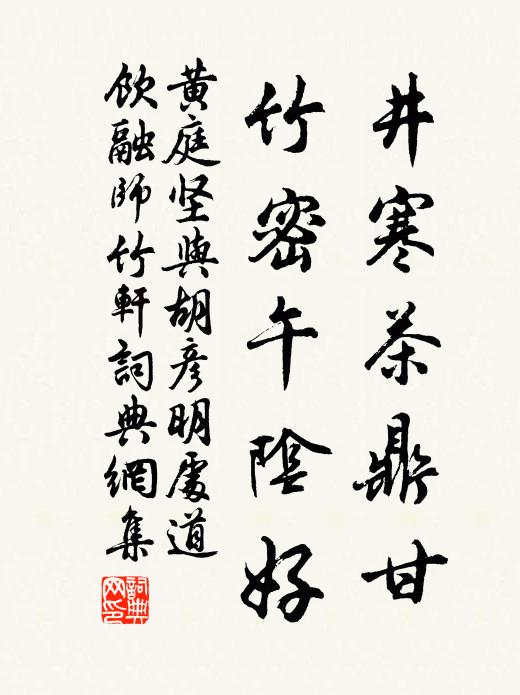 井寒茶鼎甘
竹密午陰好
黃庭坚與胡彦明處道
飲融師竹軒詞典網集
詞典網印